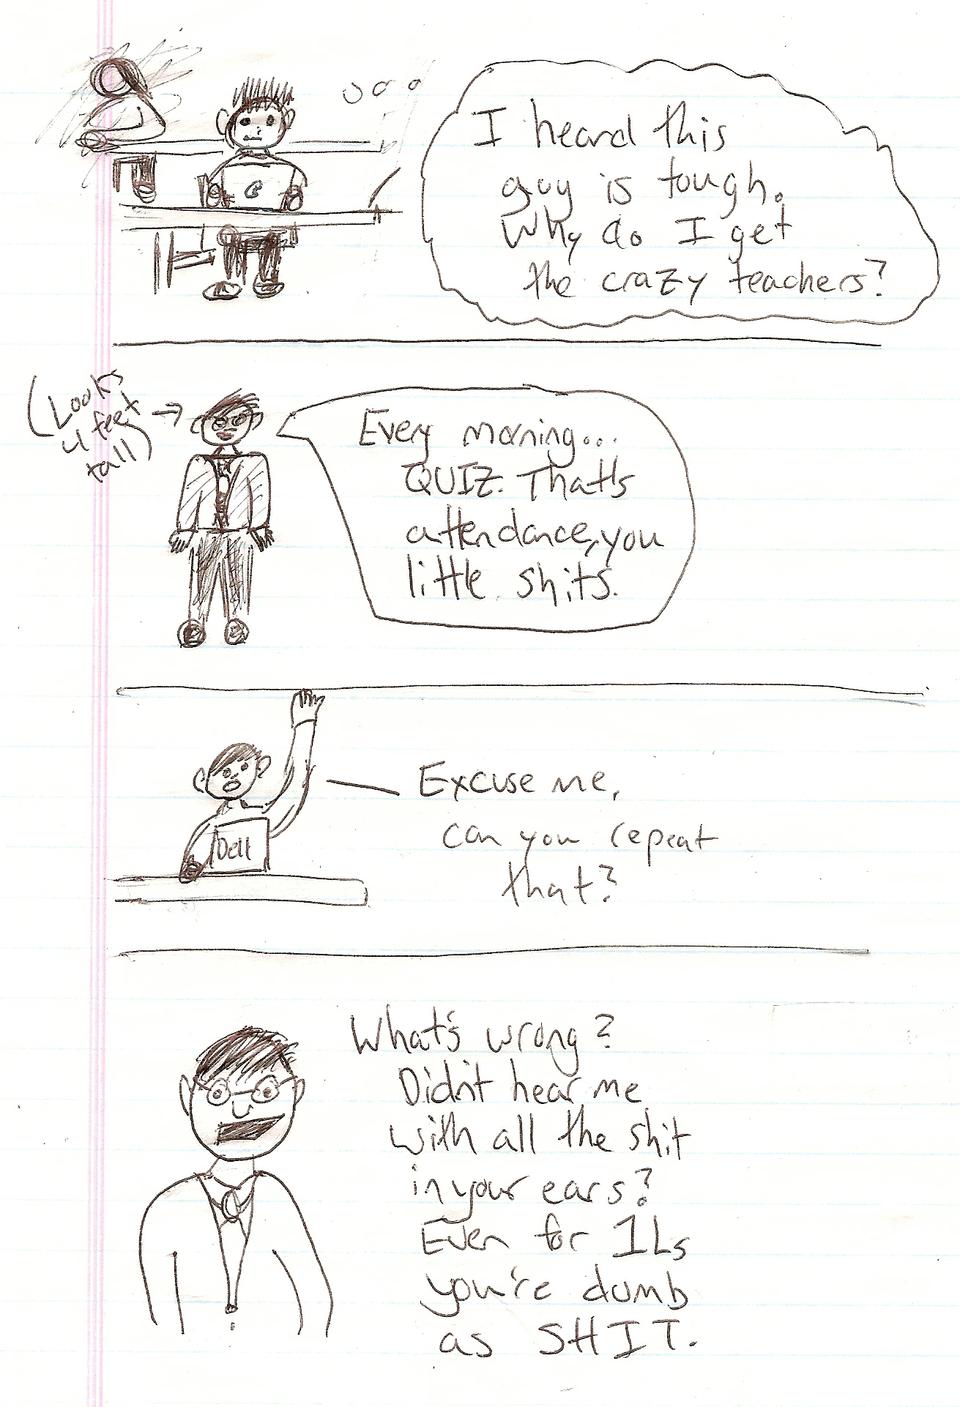 I heard this
guy is tough.
Why do I get
the crazy teachers?
(Looks
4 feet
tall)
Every morning...
QUIZ. That's
attendance, you
little shits.
Dell
Excuse me,
can you repeat
that?
What's wrong?
Didn't hear me
with all the shit
in your ears?
Even for 1Ls
you're dumb
as SHIT.